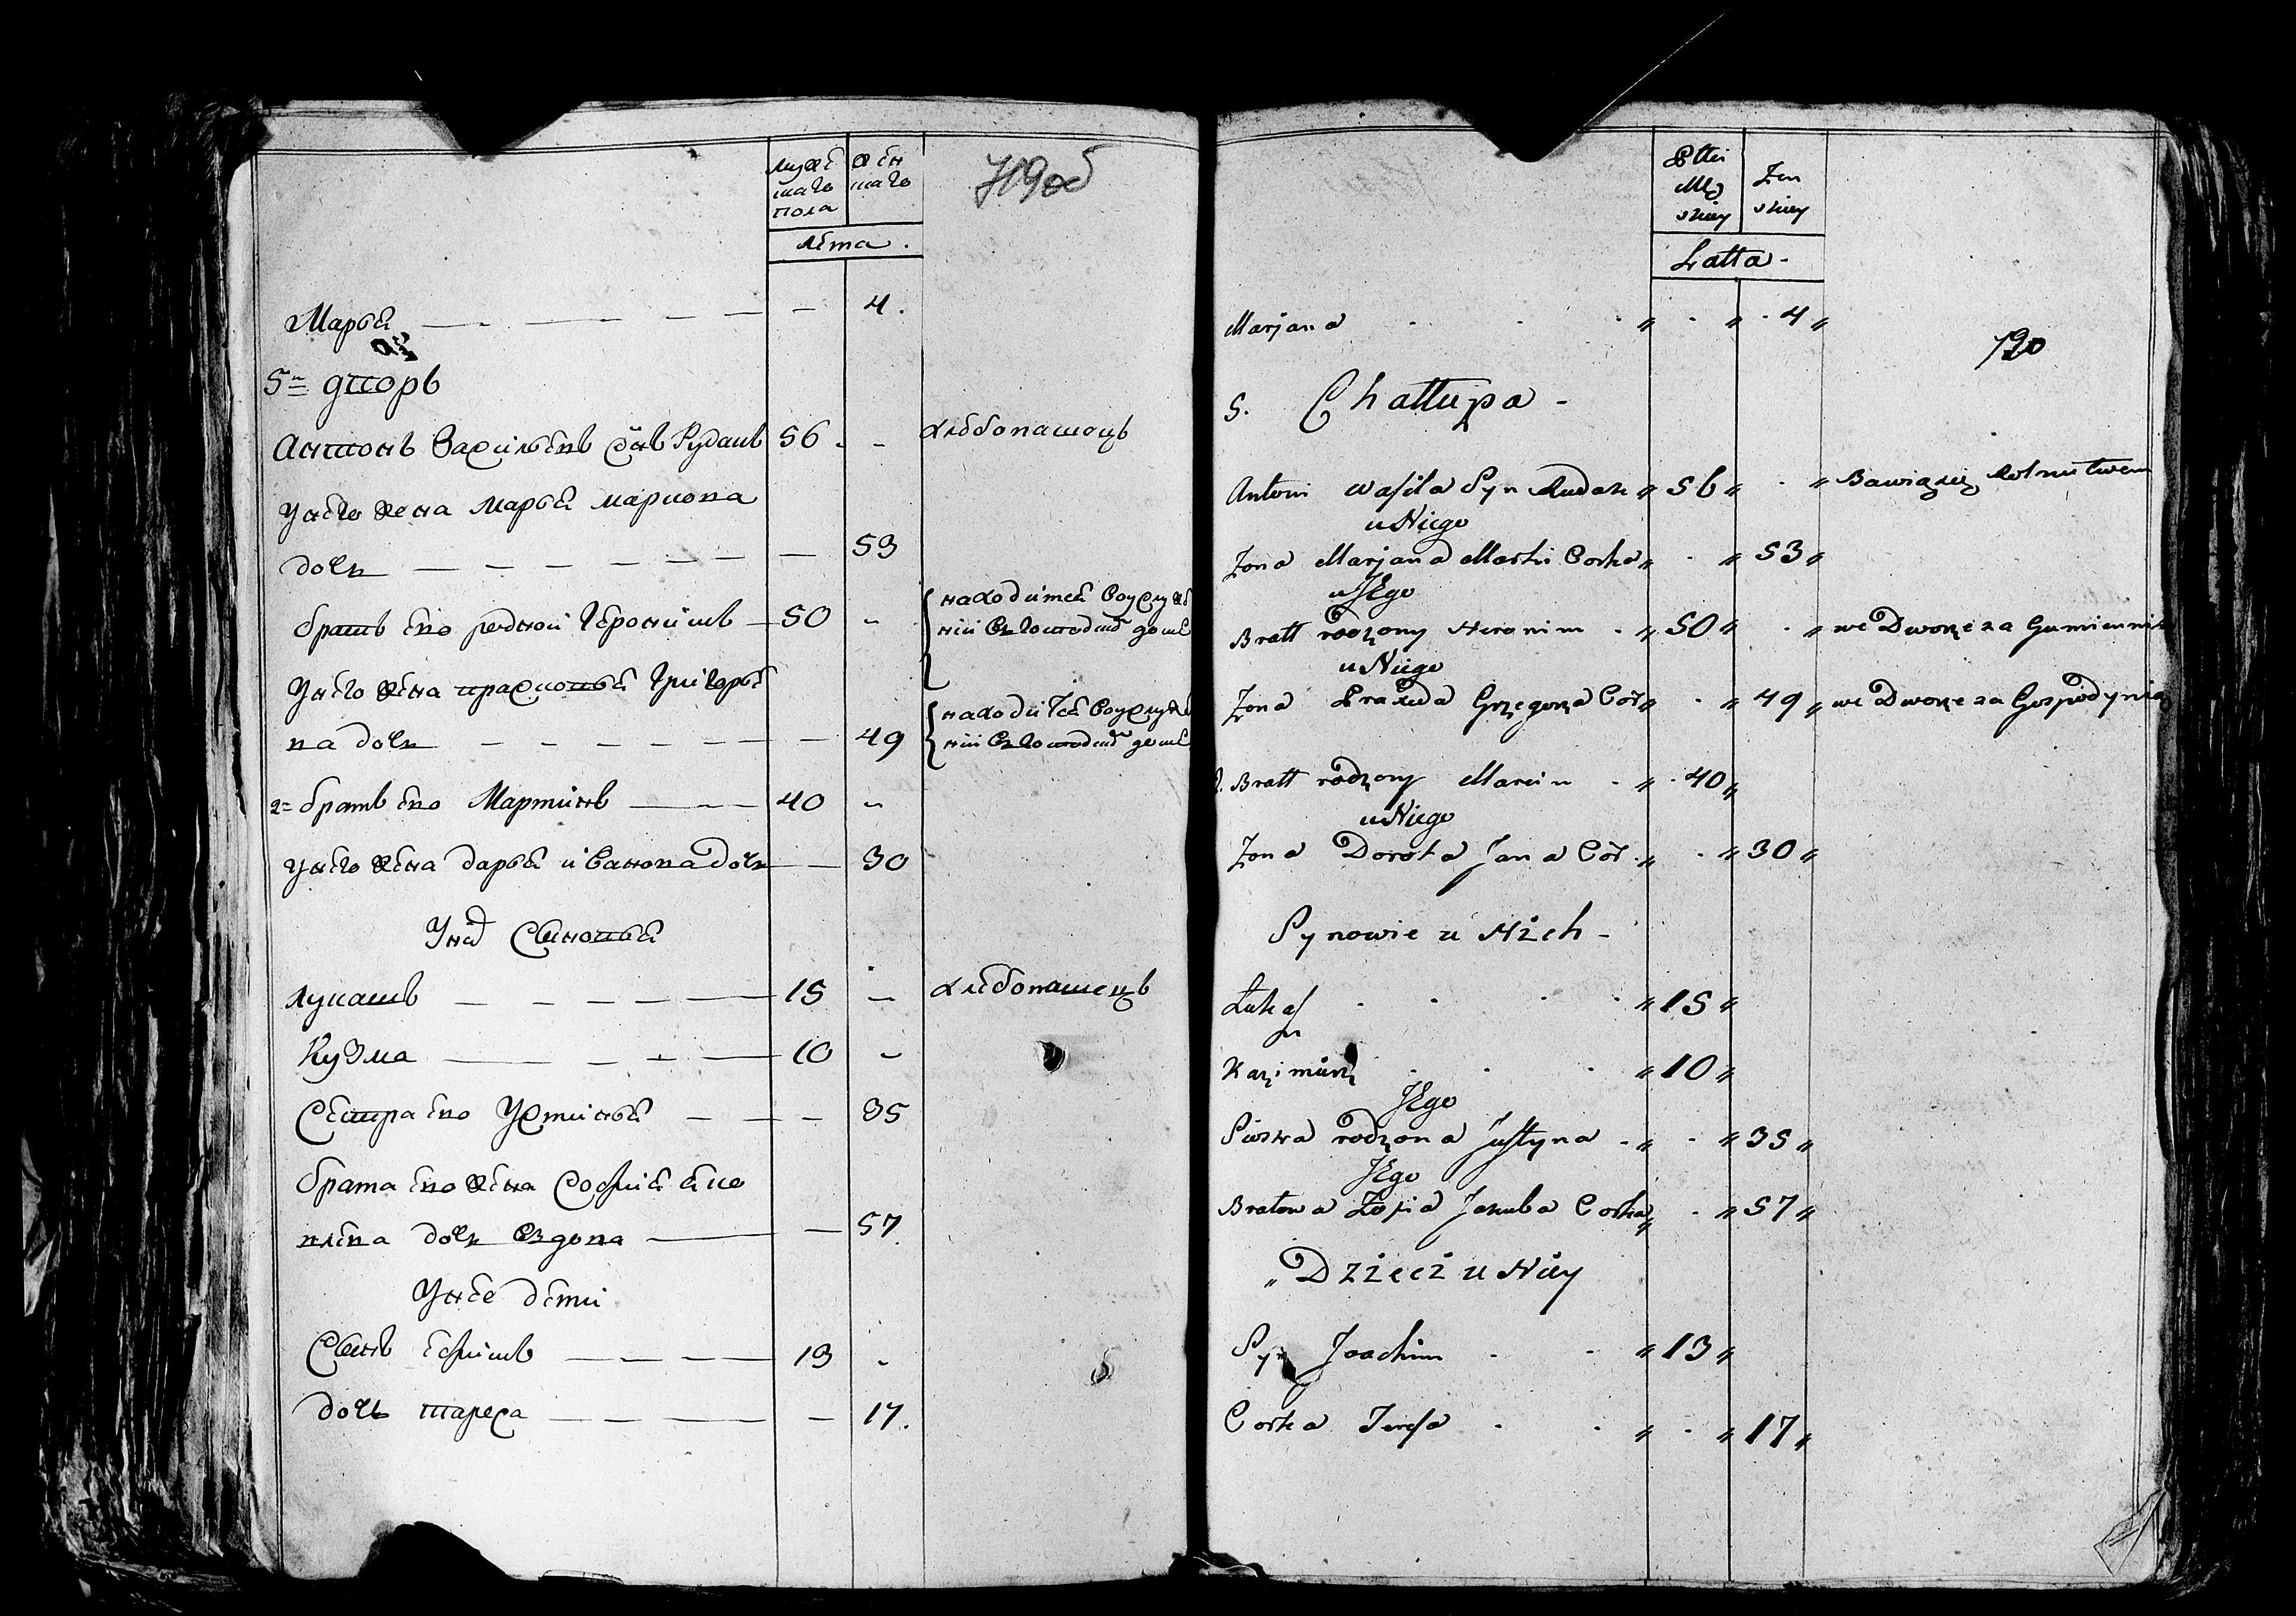 мужескаго пола
женскаго
719об
лета.
Марья — 4.
5й дворъ
Антонъ Васильевъ сынъ Рудакъ 56 — хлебопашецъ
У него жена Марья маркова
дочь — 53
братъ его родной Геронимъ — 50 — находится воуслуже
нии въ господскомъ доме
У него жена Праско Григорье
ва дочь — 49 находится воуслуже
нии въ господскомъ доме
2й братъ его Мартинъ — 40 —
У него жена дарья иванова дочь — 30
У нихъ сыновья
лукашъ — 15 — хлебопашецъ
Кузма — 10 —
Сестра его Устинья — 35
брата его жена София яко
влева дочь вдова — 57.
У нее дети
Сынъ ефимъ — 13 -
дочь тареса — 17.
Płci Męskiey
Żenskiey
Latta -
Marjana „ · „ · 4 „
720
5. Chattupa -
Antoni Wasila Syn Rudak „ 56 „ · „ Bawiąsię Rolnictwem
u Niego
Żona Marjana Marki Corka „ · „ 53 „
u JEgo
Bratt rodzony Heronim · „ 50 „ · „ we Dworze za Gumiennika
u Niego
Żona Praxeda Grzegorza Cór „ · „ 49 „ we Dworze za Gospodynią
2. Bratt rodzony Marcin · „ · 40 „
u Niego
Żona Dorota Jana Cór · „ · „ 30 „
Synowie u Nich -
Łukasz „ 15 „
Kazimierz „ 10 „
JEgo
Siostra rodzona Justyna · „ · „ 35 „
JEgo
Bratowa Zofia Jakuba Corka „ · „ 57 „
„ Dzieci u Niey
Syn Joachim „ 13 „
Corka Teresa „ · „ 17 „